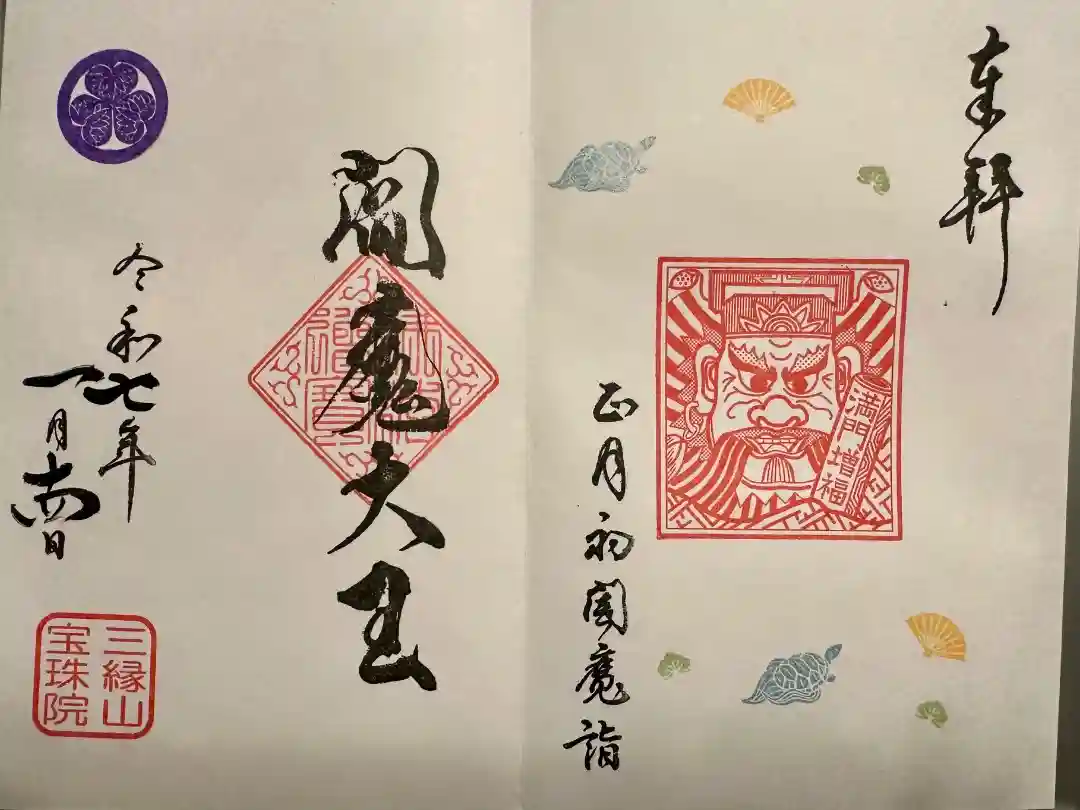 奉拝
満門
増福
正月初閻魔詣
閻魔大王
令和七年
一月十四日
三縁山
宝珠院